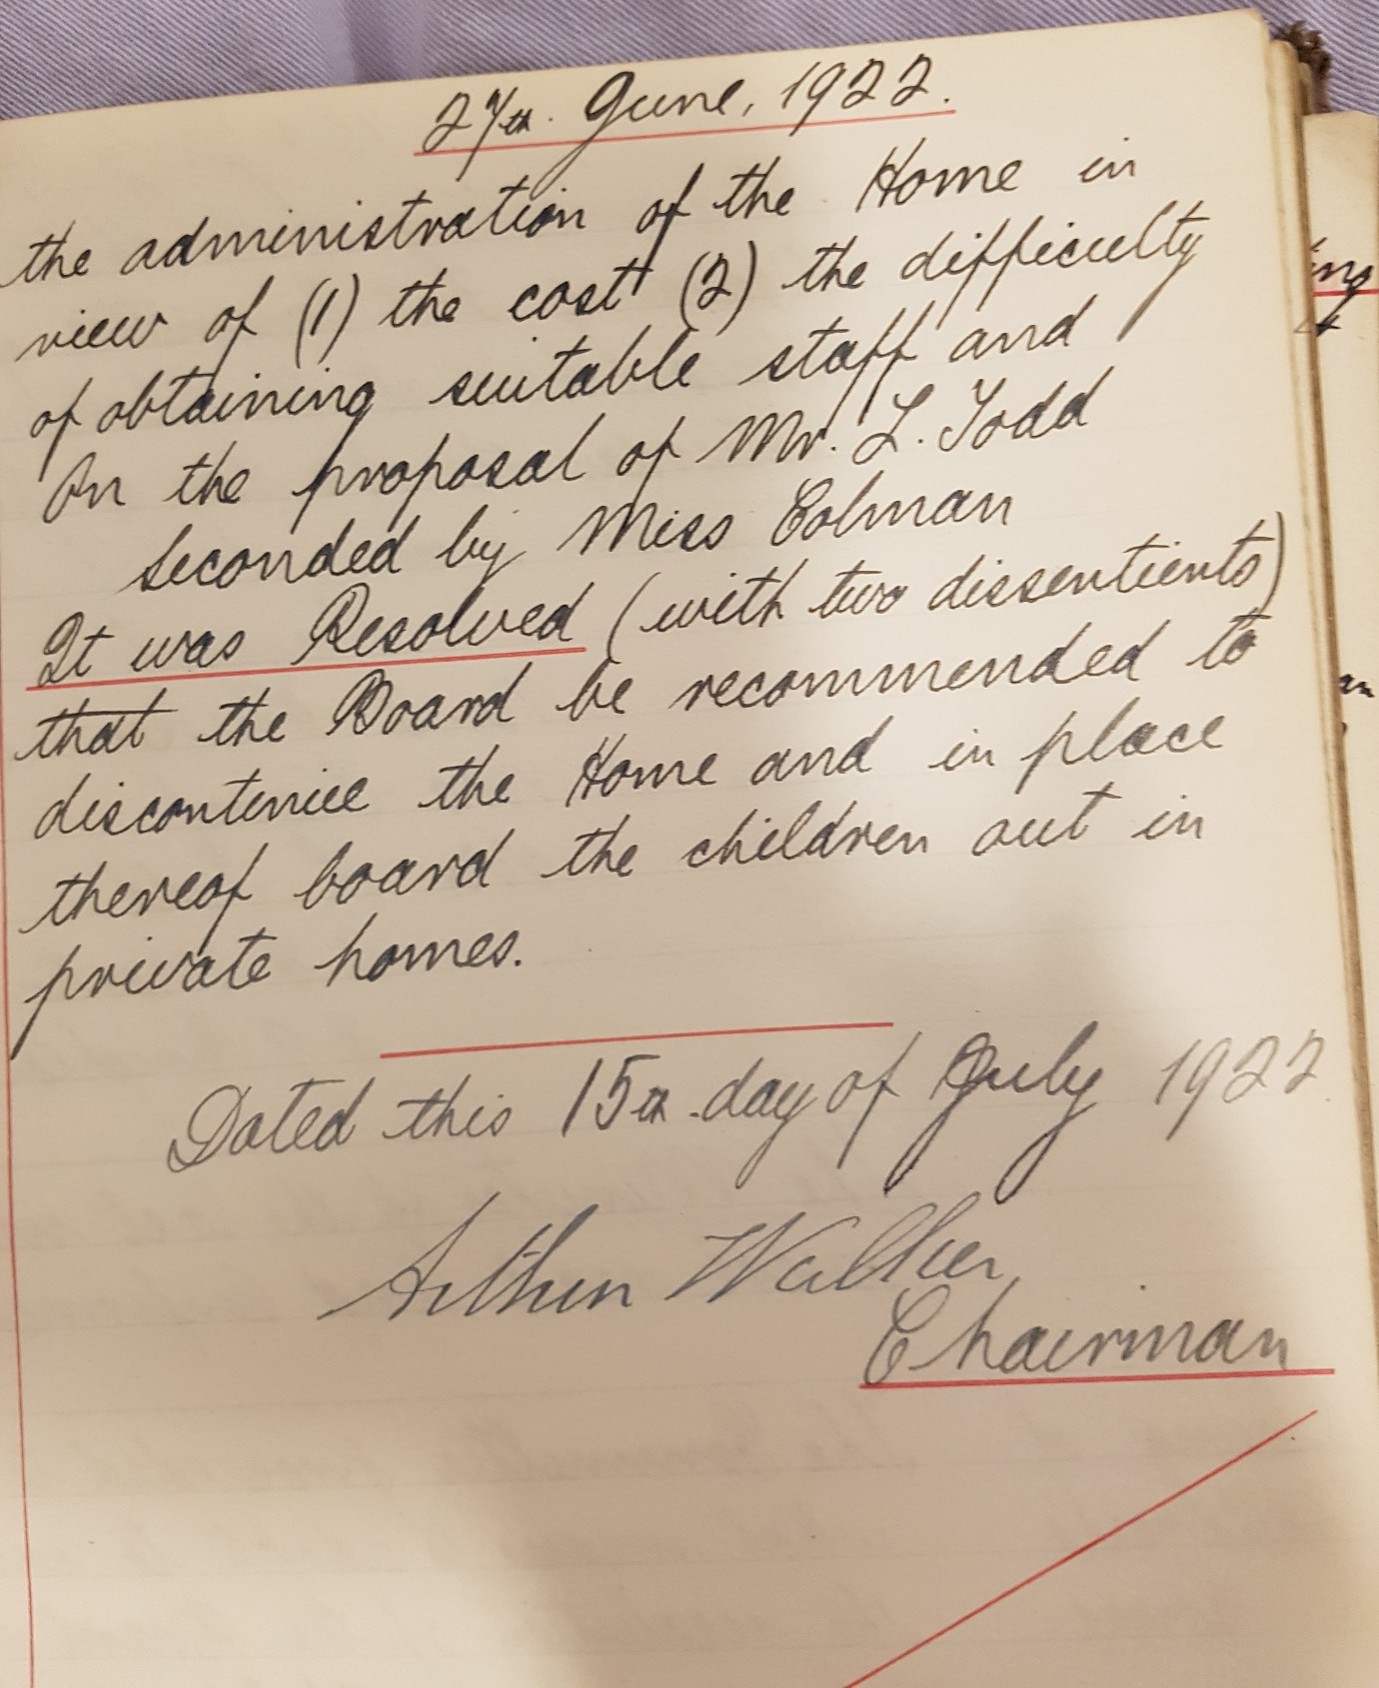 27th. June, 1922.
the administration of the Home in
view of (1) the cost (2) the difficulty
of obtaining suitable staff and
On the proposal of Mr. L. Todd
seconded by Miss Colman
It was Resolved (with two dissentients)
that the Board be recommended to
discontinue the Home and in place
thereof board the children out in
private homes.
Dated this 15th day of July 1922.
Arthur Walker
Chairman